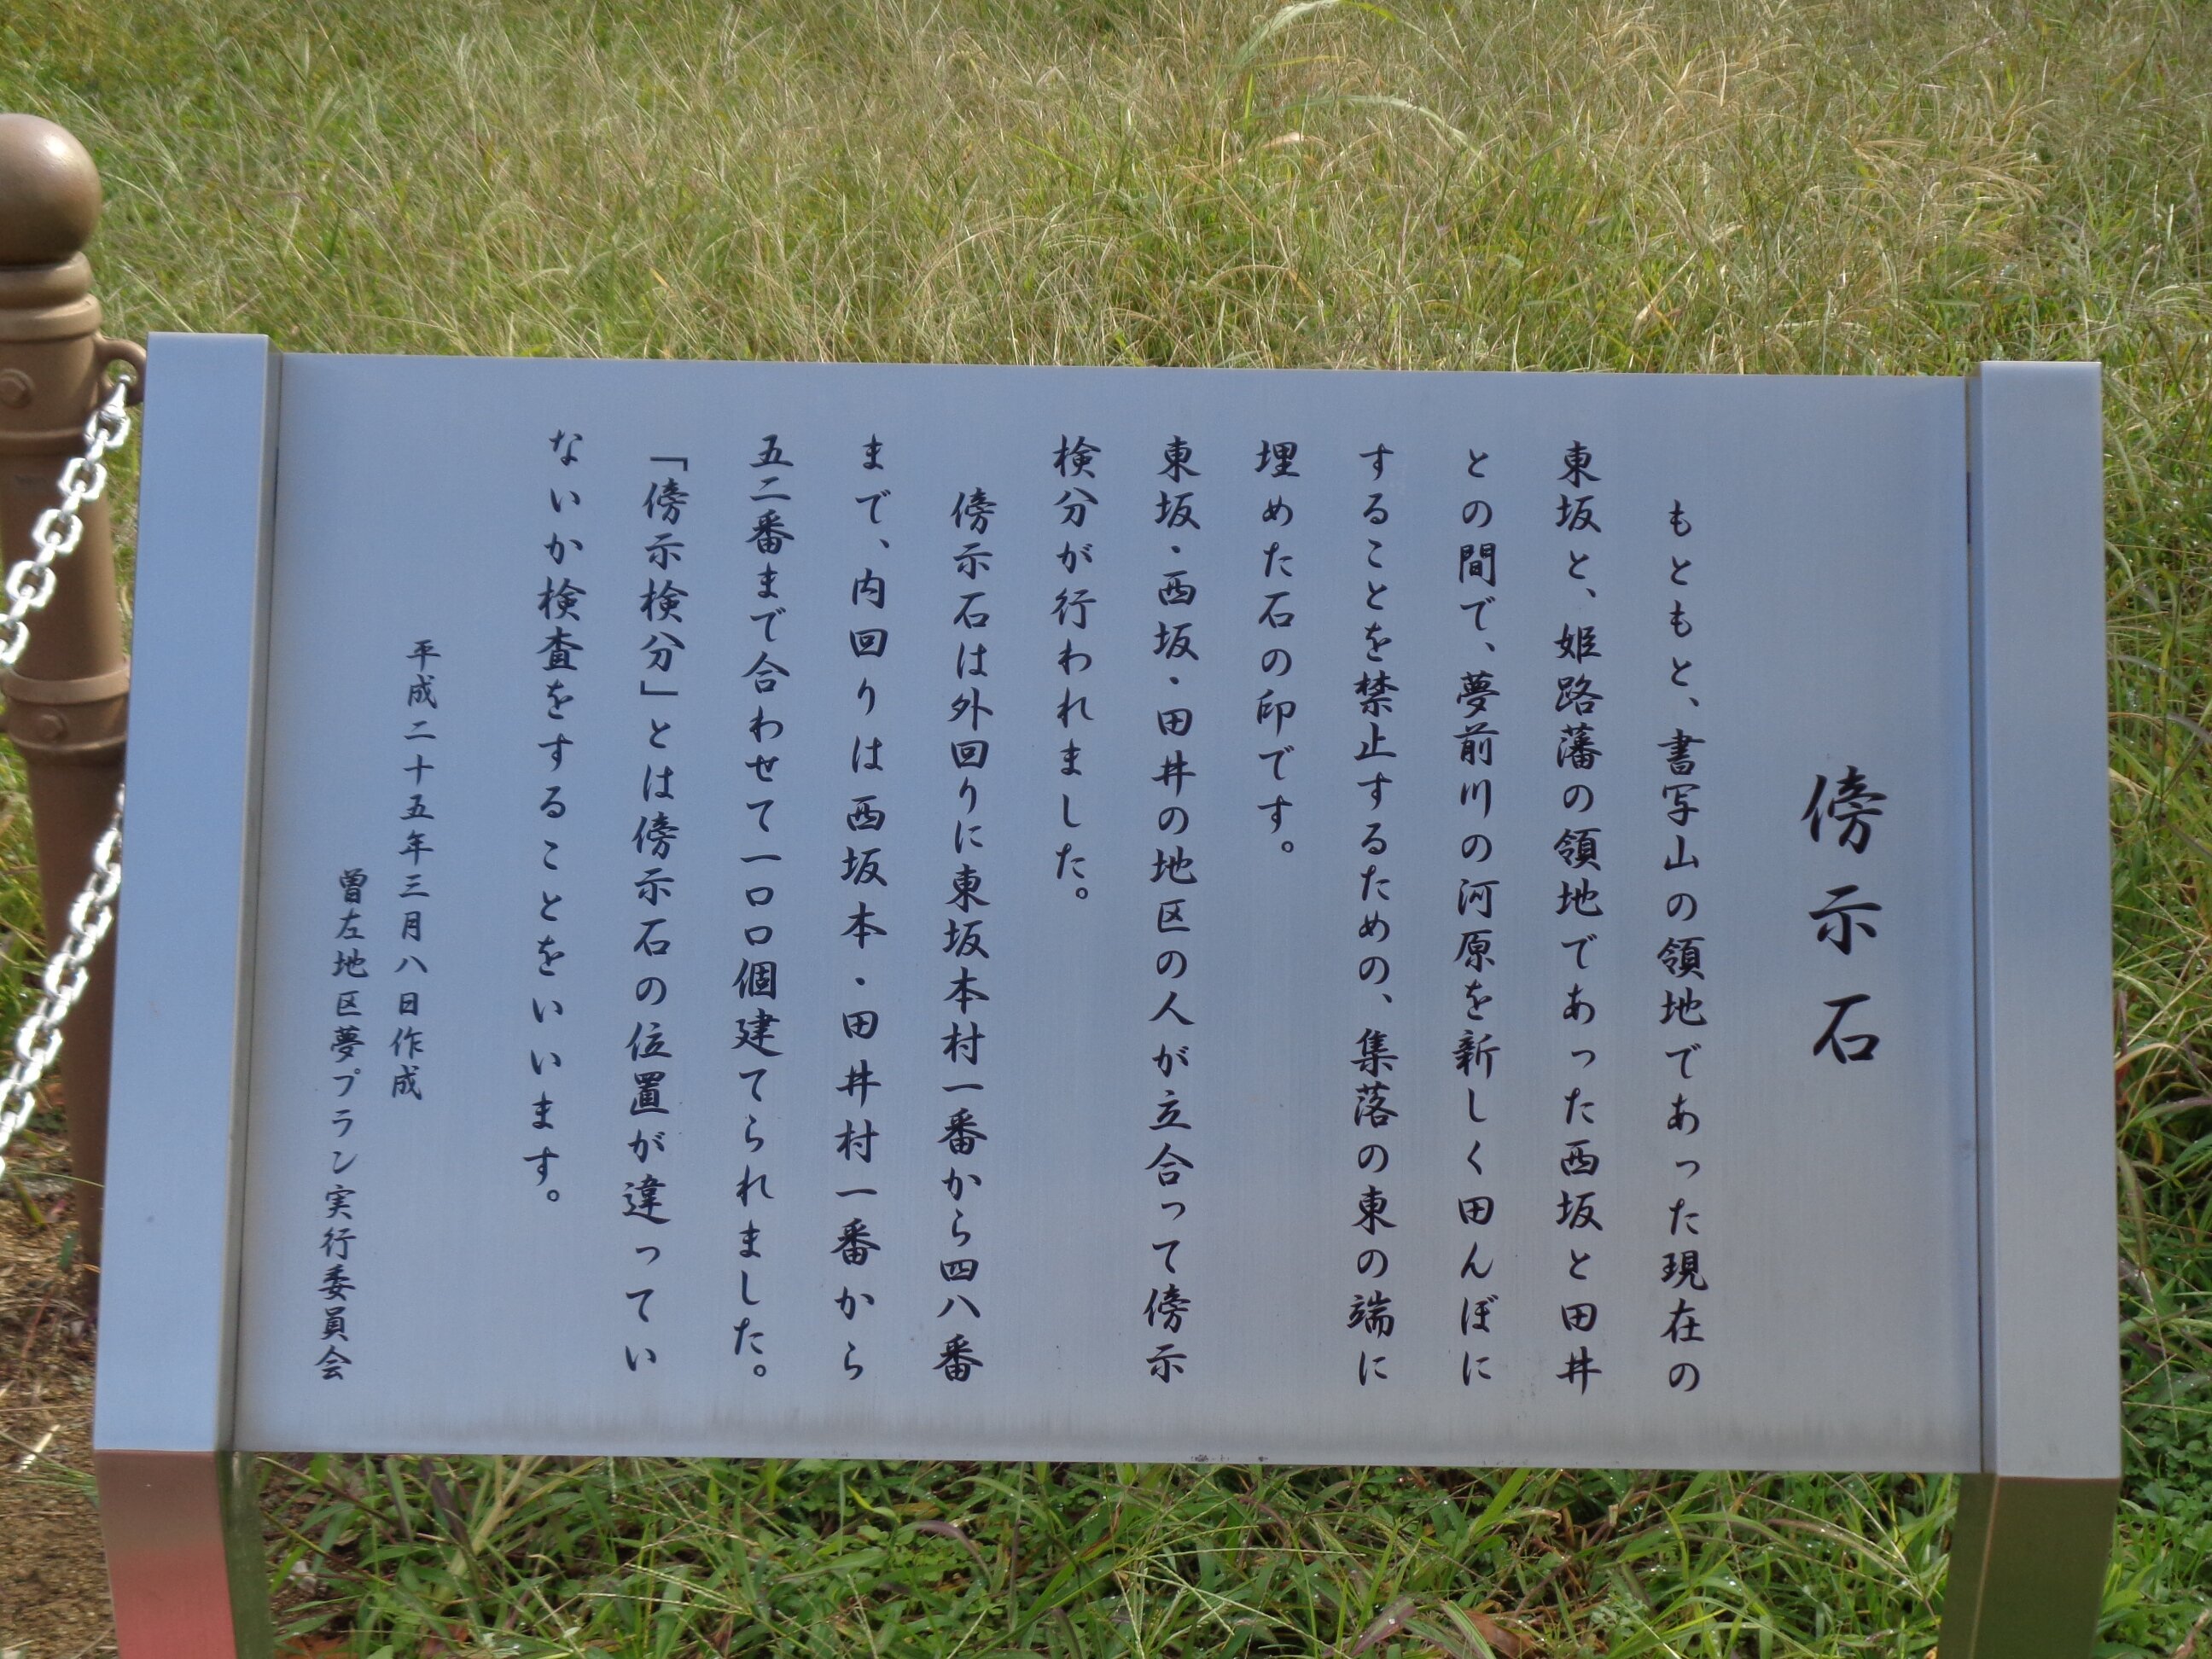 傍示石
もともと、書写山の領地であった現在の
東坂と、姫路藩の領地であった西坂と田井
との間で、夢前川の河原を新しく田んぼに
することを禁止するための、集落の東の端に
埋めた石の印です。
東坂・西坂・田井の地区の人が立合って傍示
検分が行われました。
傍示石は外回りに東坂本村一番から四八番
まで、内回りは西坂本・田井村一番から
五二番まで合わせて一口口個建てられました。
「傍示検分」とは傍示石の位置が違ってい
ないか検査をすることをいいます。
平成二十五年三月八日作成
曽左地区夢プラン実行委員会